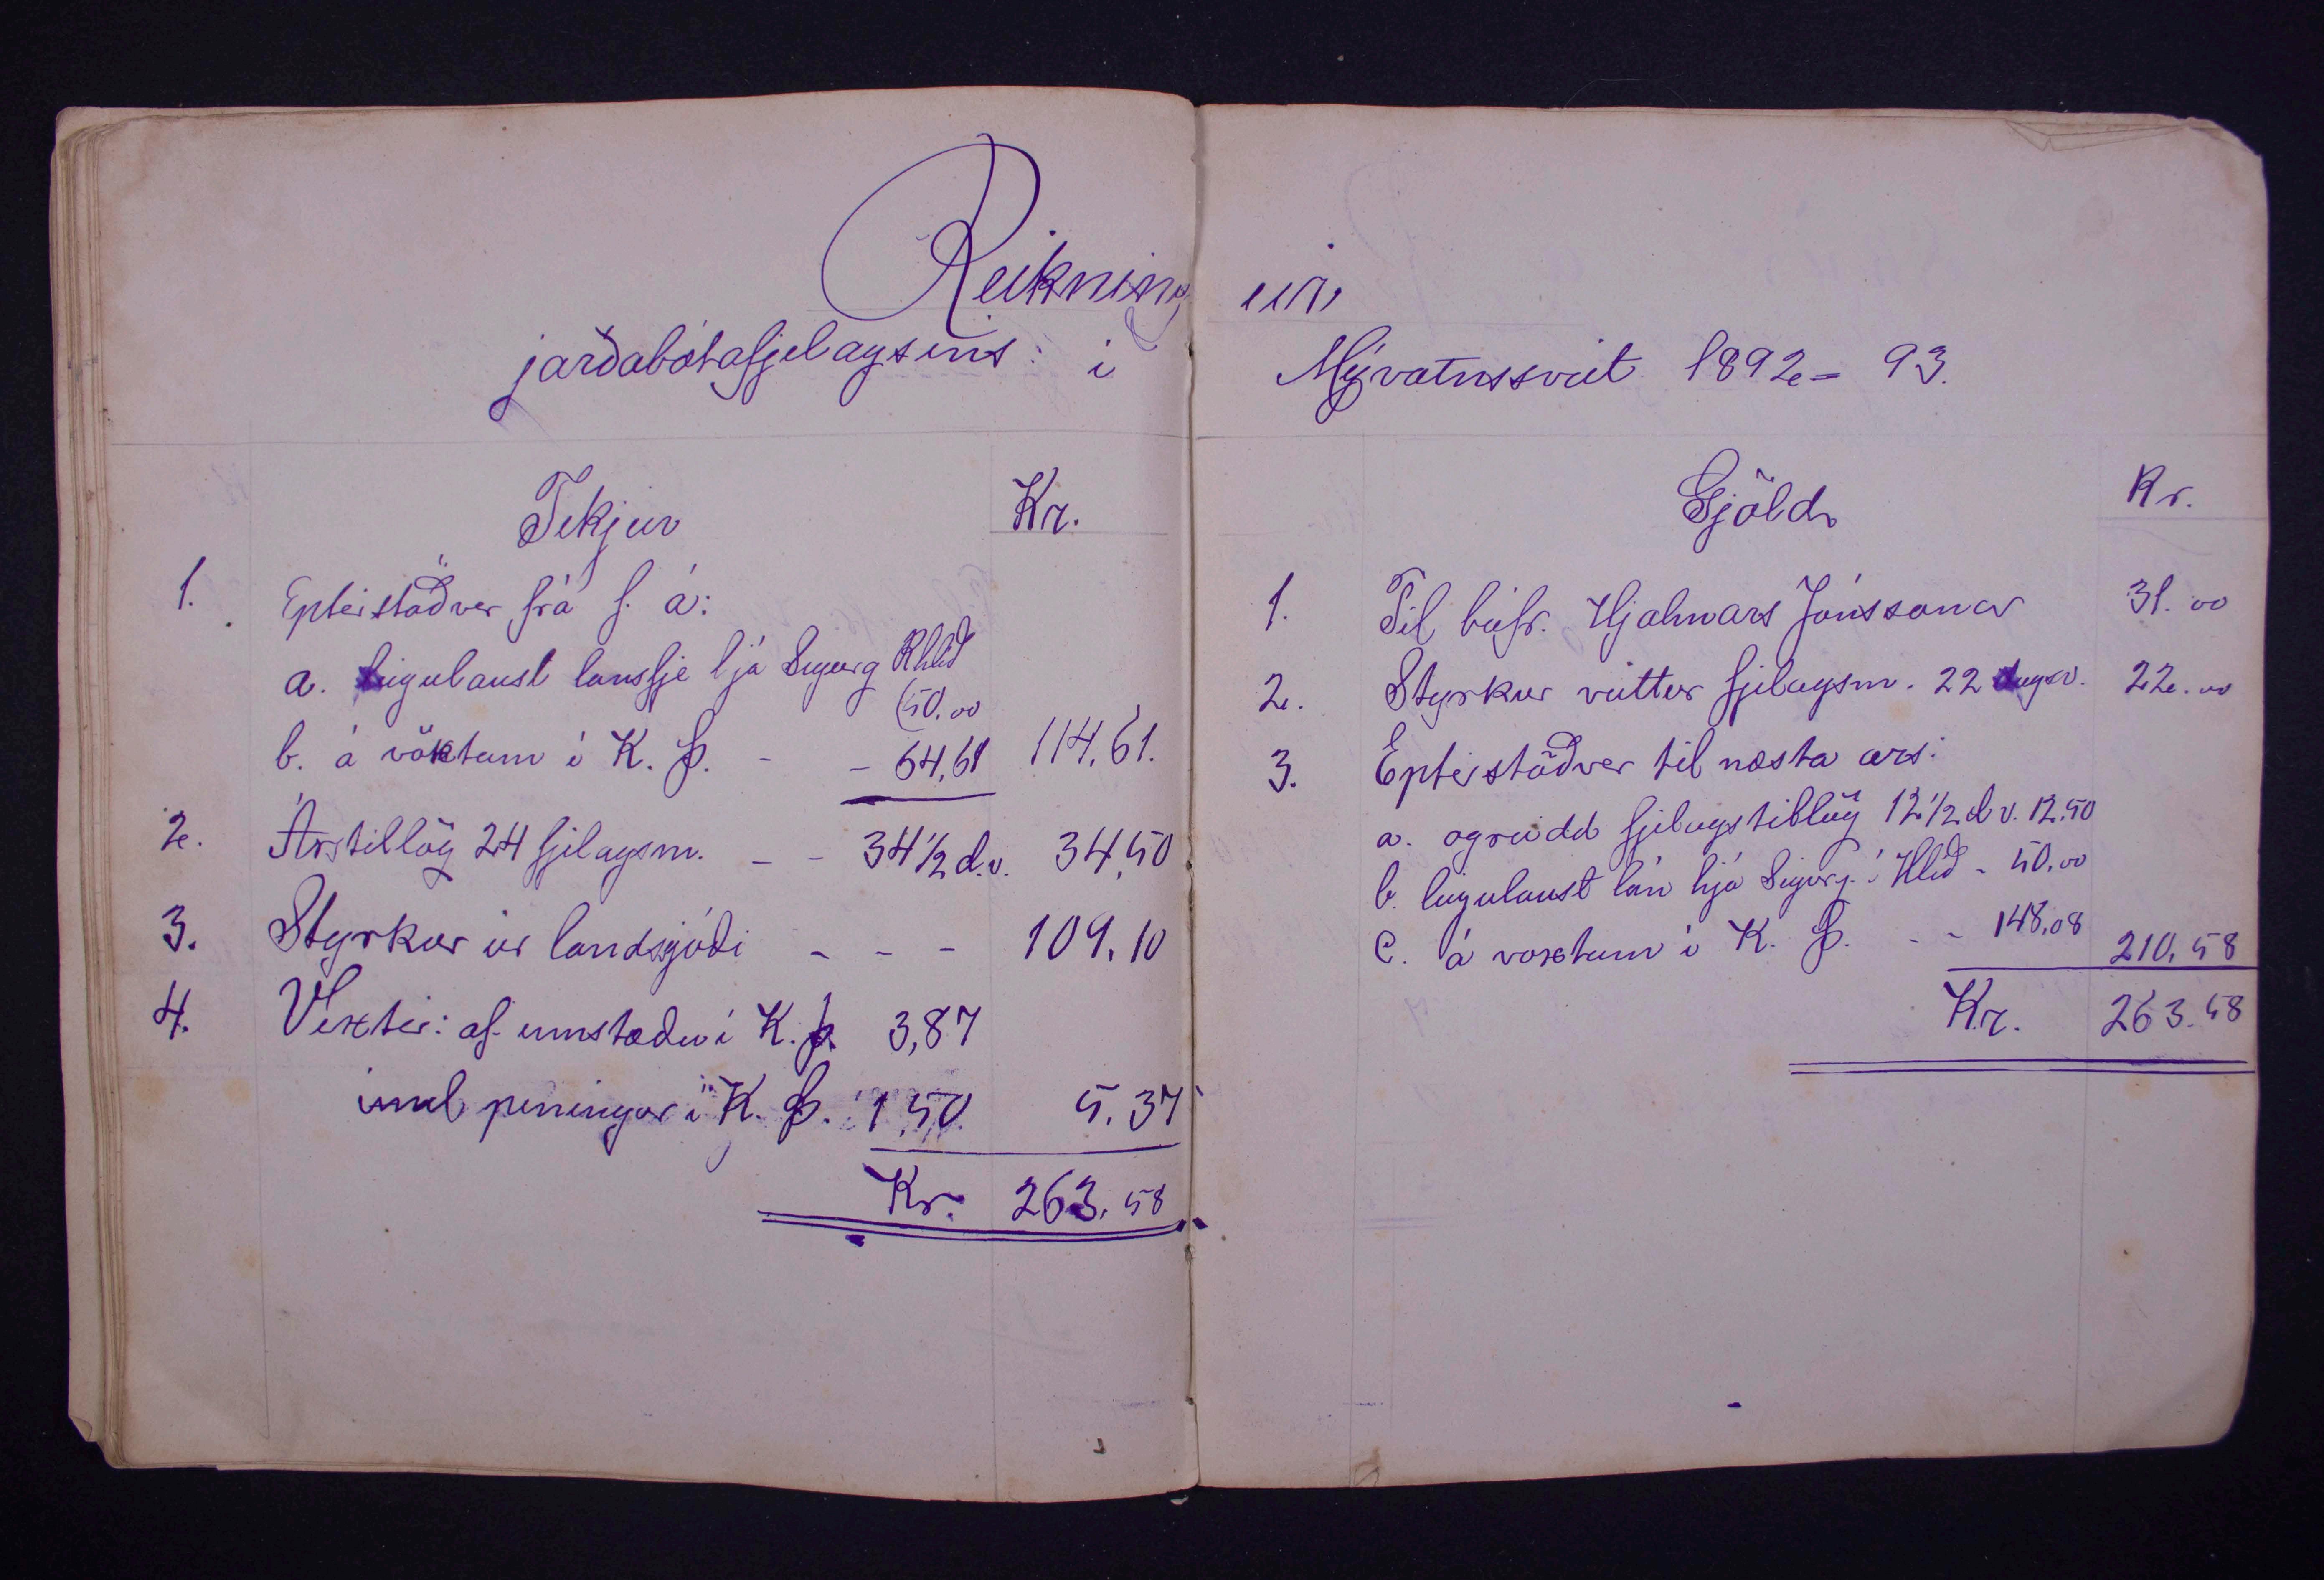 Reikningur
jarðabótafjelagsins í Mývatnssveit 1892 = 93.
Tekjur Kr.
1. Eptirstöðvar frá f. á:
a. leigulaust lánsfje hjá Sigurg Rhlíð
(50.00
b. á vöxtum í K. Þ. - - 64,61 114,61.
2. Árstillög 24 fjelagsm. - - 34 1/2 d.v. 34,50
3. Styrkur úr landsjóði - - - 109.10
4. Vextir: af innstæðu í K. Þ. 3,87
innl peningar í K. Þ. 1,50 5.37
Kr. 263.58
Gjöld Kr.
1. Til búfr. Hjalmars Jónssonar 31.00
2. Styrkur veittur fjelagsm. 22 dagsv. 22.00
3. Eptirstöðvar til næsta árs:
a. ogreidd fjelagstillög 12 1/2 d v. 12.50
b. leigulaust lán hjá Sigurg. í Hlíð - 50.00
c. á voxtum í K. Þ. - - 148,08 210.58
Kr. 263.58